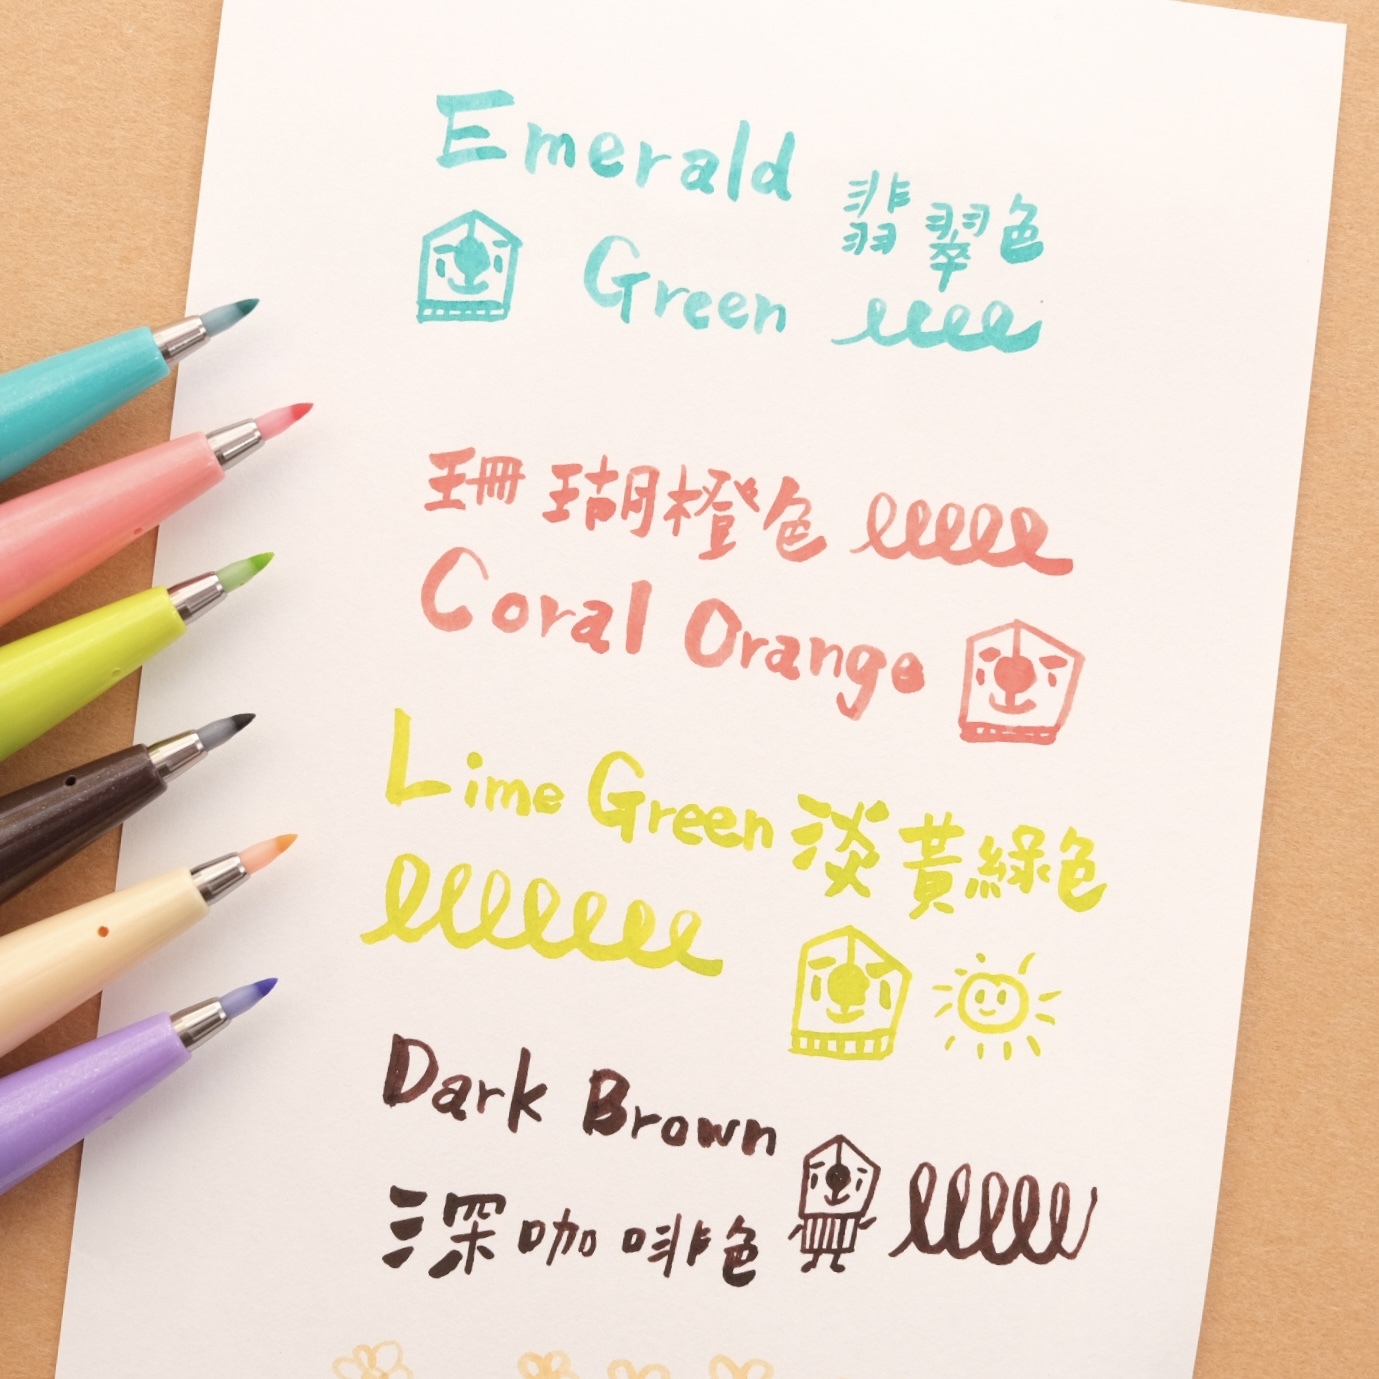 Emerald
翡翠色
Green
珊瑚橙色
Coral Orange
Lime Green 淡黃綠色
Dark Brown
深咖啡色